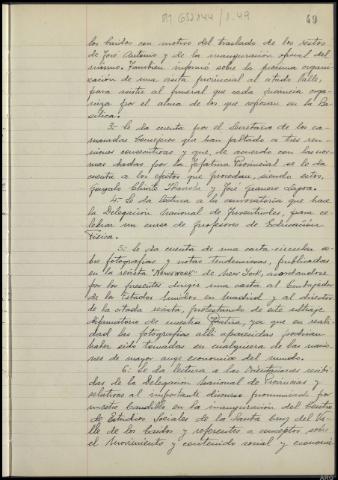 M 652144/1.49
49
los Caidos con motivo del traslado de los restos
de José Antonio y de la inauguración oficial del
mismo. Tambien informo sobre la próxima organi-
zación de una visita provincial al citado Valle,
para asistir al funeral que cada provincia orga-
niza por el alma de los que reposan en la Ba-
silica.
3.- Se da cuenta por el Secretario de los ca-
maradas Consejeros que han faltado a tres reu-
niones consecutivas y que, de acuerdo con las nor-
mas dadas por la Jefatura Provincial se le da
cuenta a los efectos que procedan, siendo estos,
Gonzalo y José
4.- Se da lectura a la convocatoria que hace
la Delegación Nacional de Juventudes, para ce-
lebrar un curso de Profesores de Educación
Fisica.
5.- Se da cuenta de una carta-circular so-
bre fotografias y notas tendenciosas, publicadas
en la revista "Newsweek" de New York, acordandose
por los presentes dirigir una carta al Embajador
de los Estados Unidos en Madrid y al director
de la citada revista, protestando de este
difamatorio de nuestra Patria, ya que en reali-
dad las fotografias alli aparecidas podrian
haber sido tomadas en cualquiera de las nacio-
nes de mayor auge economico del mundo.
6.- Se da lectura a las orientaciones recibi-
das de la Delegación Nacional de Provincias y
relativas al importante discurso pronunciado por
nuestro Caudillo en la inauguración del Centro
de Estudios Sociales de la Santa Cruz del Va-
lle de los Caidos y referente a conceptos sobre
el Movimiento y contenido social y economi-